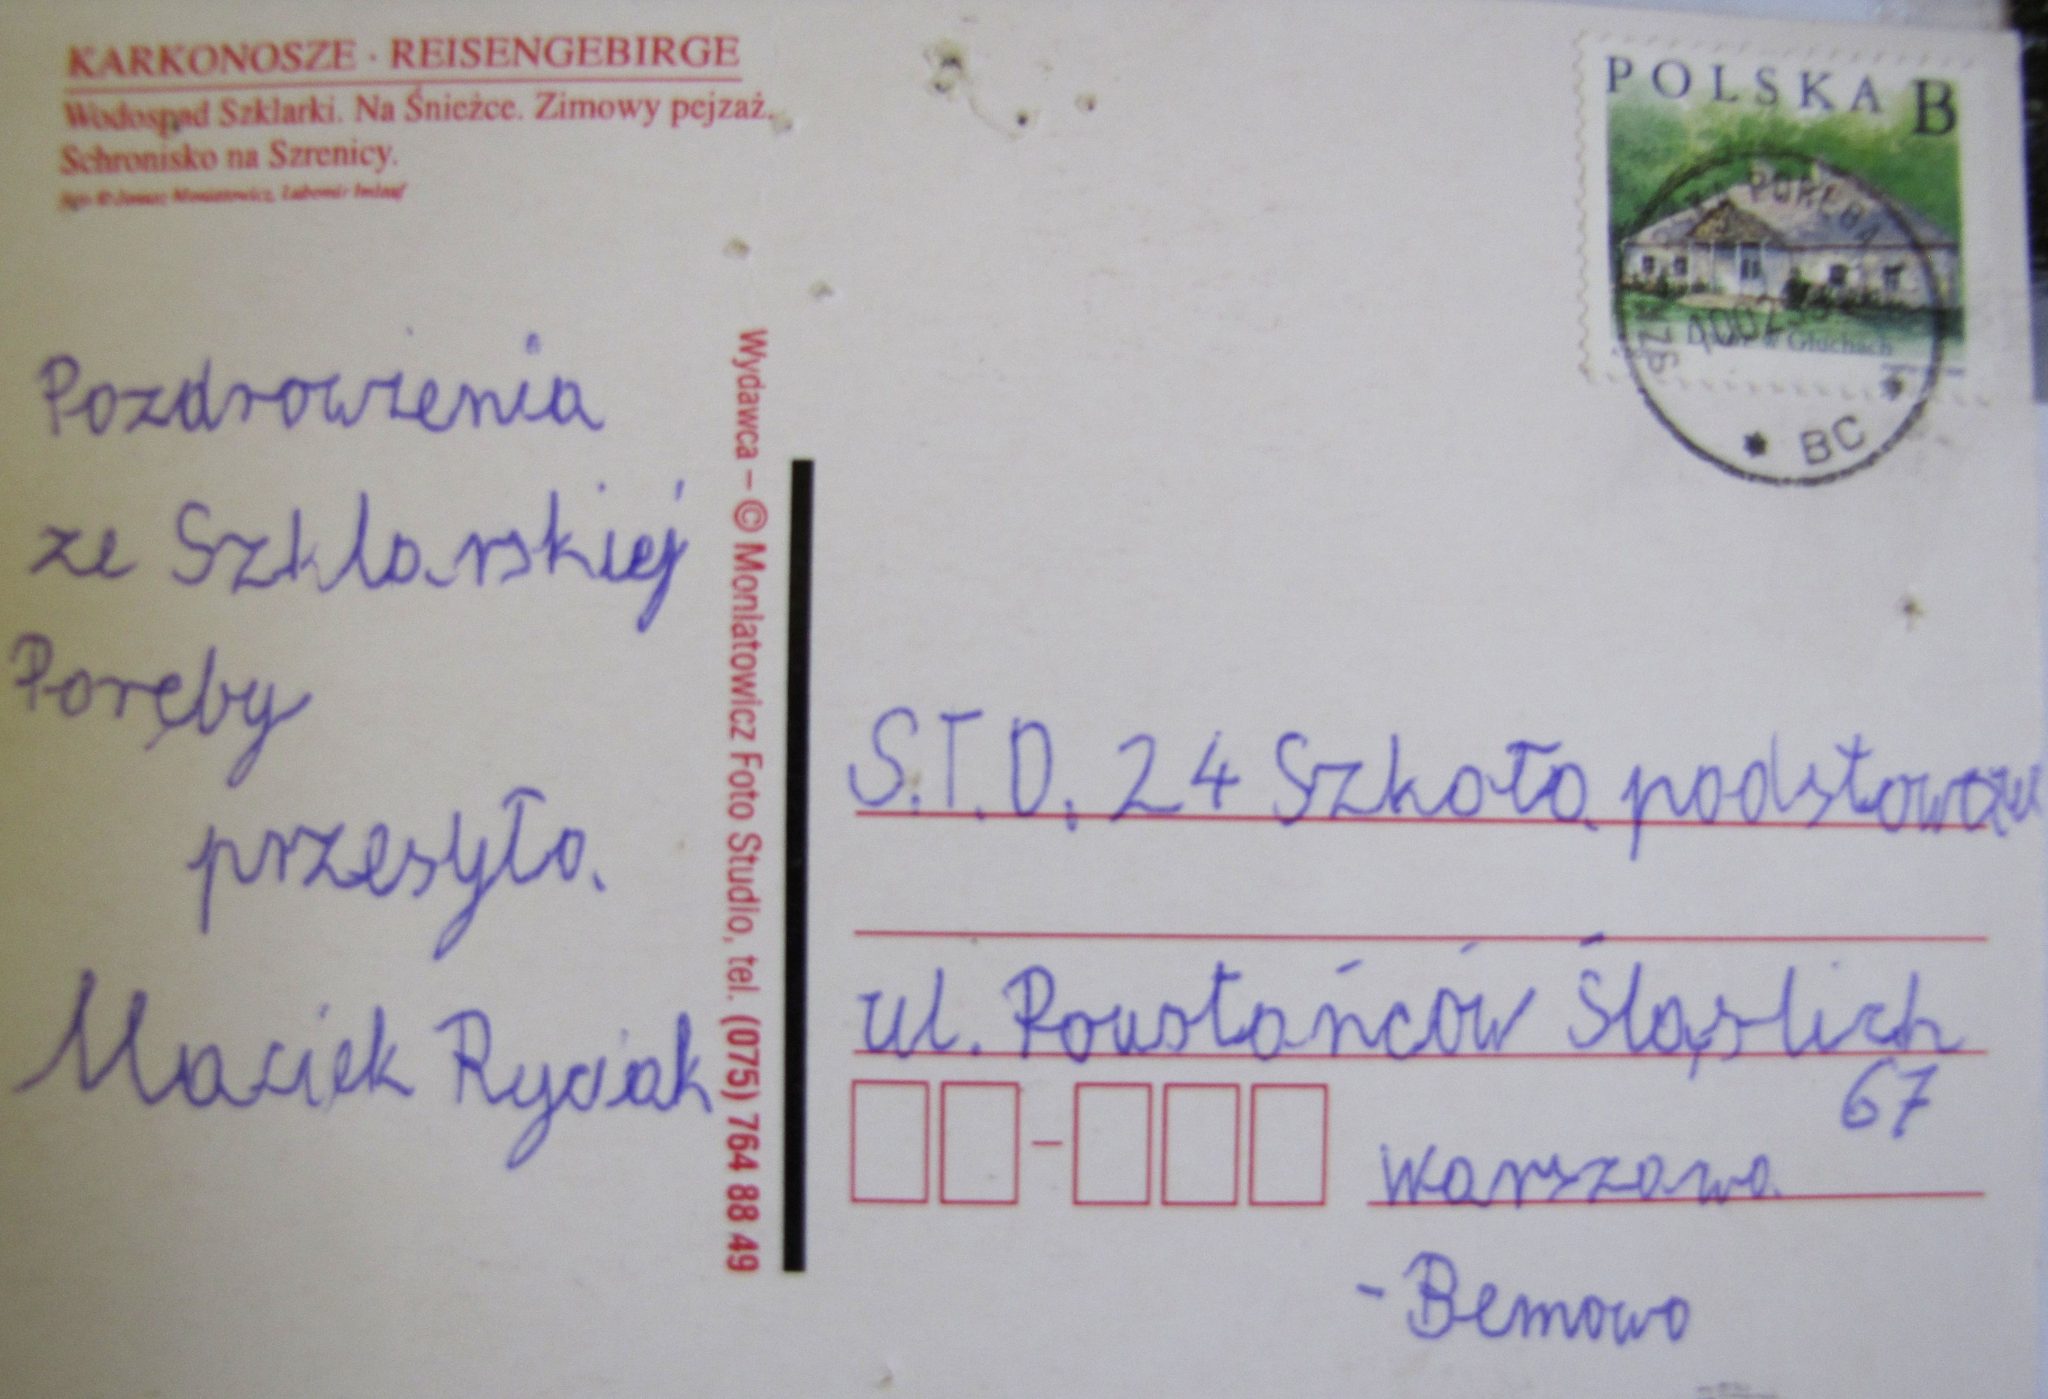 KARKONOSZE · REISENGEBIRGE
Wodospad Szklarki. Na Śnieżce. Zimowy pejzaż.
Schronisko na Szrenicy.
Pozdrowienia
ze Szklarskiej
Poręby
przesyła.
Maciek Ryciak
Wydawca – © Moniatowicz Foto Studio, tel. (075) 764 88 49
POLSKA B
PORĘBA
w Głuchach
* BC *
S.T.D. 24 Szkoła
ul. Powstańców Śląslich
67
Warszawa
- Bemowo